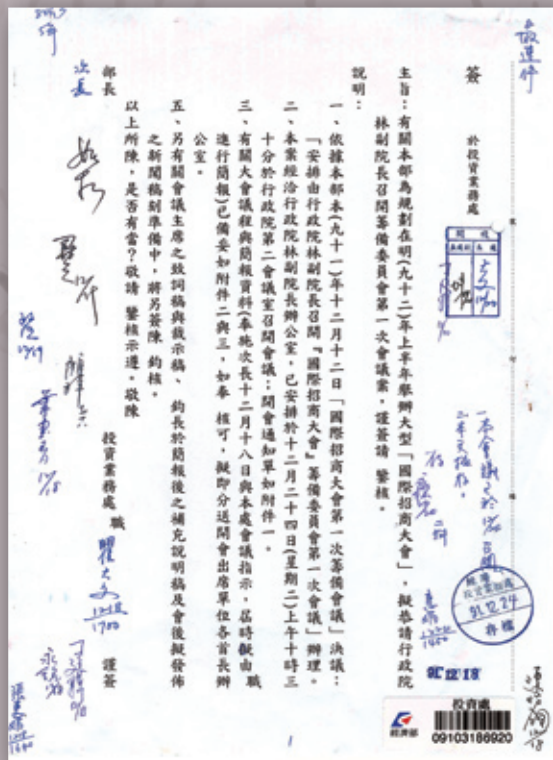 最速件
簽　於投資業務處
主旨：有關本部為規劃在明(九十二)年上半年舉辦大型「國際招商大會」，擬恭請行政院
林副院長召開籌備委員會第一次會議案，謹簽請　鑒核。
說明：
一、依據本部本(九十一)年十二月十二日「國際招商大會第一次籌備會議」決議：
「安排由行政院林副院長召開『國際招商大會』籌備委員會第一次會議」辦理。
二、本案經洽行政院林副院長辦公室，已安排於十二月二十四日(星期二)上午十時三
十分於行政院第二會議室召開會議；開會通知單如附件一。
三、有關大會議程與簡報資料(奉施次長十二月十八日與本處會議指示，屆時擬由　職
進行簡報)已備妥如附件二與三，如奉　核可，擬即分送開會出席單位各首長辦
公室。
五、另有關會議主席之致詞稿與裁示稿、　鈞長於簡報後之補充說明稿及會後擬發佈
之新聞稿刻準備中，將另簽陳　鈞核。
以上所陳，是否有當？敬請　鑒核示遵。敬陳
次長
部長
投資業務處　職　瞿大文　謹簽
12/18
1700
91.12.24
存檔
91.12.18
投資處
經濟部
09103186920
1